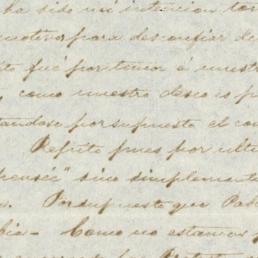 ha sido mi intencion tor
motivo para desconfiar de
to fué por temor á nuestr
, como nuestro deseo es p
tandose por supuesto el con
Repito pues por ulti
pensée" sino simplemente
s. Por supuesto que Pabl
bia. Como no estamos p